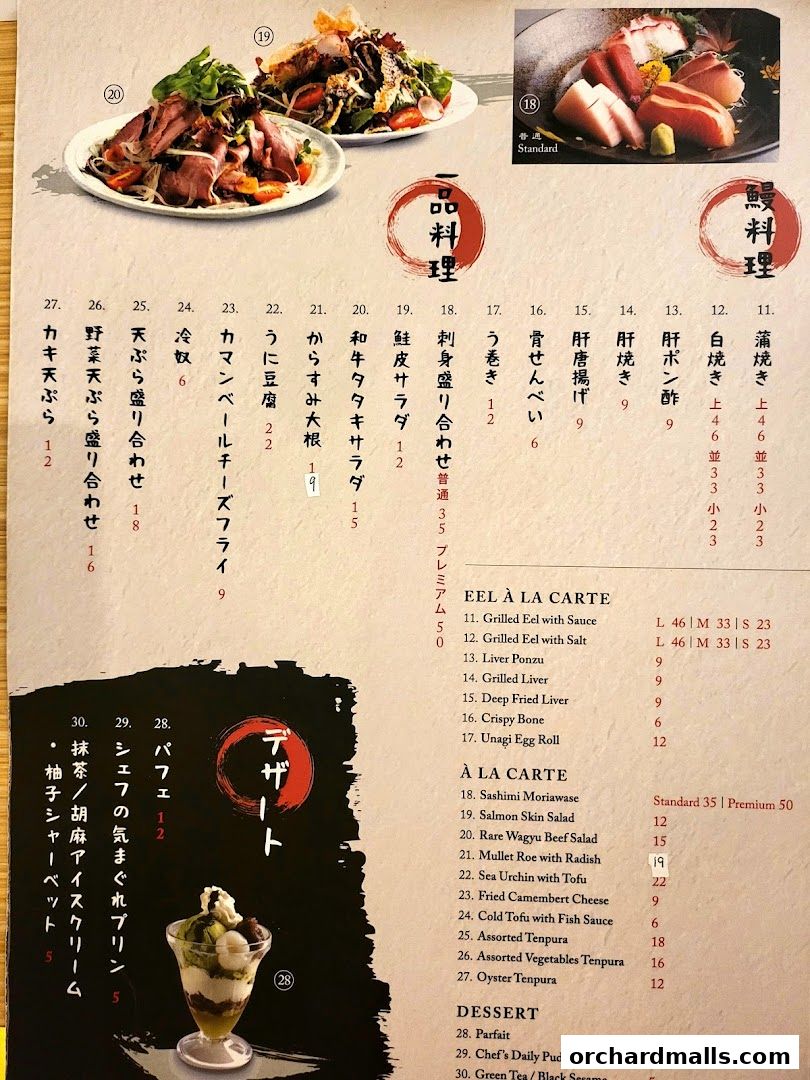 ⑲
⑳
⑱
普通
Standard
鰻料理
11. 蒲焼き 上46 並33 小23
12. 白焼き 上46 並33 小23
13. 肝ポン酢 9
14. 肝焼き 9
15. 肝唐揚げ 9
16. 骨せんべい 6
17. う巻き 12
一品料理
18. 刺身盛り合わせ 普通 35 プレミアム 50
19. 鮭皮サラダ 12
20. 和牛タタキサラダ 15
21. からすみ大根 19
22. うに豆腐 22
23. カマンベールチーズフライ 9
24. 冷奴 6
25. 天ぷら盛り合わせ 18
26. 野菜天ぷら盛り合わせ 16
27. カキ天ぷら 12
EEL À LA CARTE
11. Grilled Eel with Sauce L 46 | M 33 | S 23
12. Grilled Eel with Salt L 46 | M 33 | S 23
13. Liver Ponzu 9
14. Grilled Liver 9
15. Deep Fried Liver 9
16. Crispy Bone 6
17. Unagi Egg Roll 12
À LA CARTE
18. Sashimi Moriawase Standard 35 | Premium 50
19. Salmon Skin Salad 12
20. Rare Wagyu Beef Salad 15
21. Mullet Roe with Radish 19
22. Sea Urchin with Tofu 22
23. Fried Camembert Cheese 9
24. Cold Tofu with Fish Sauce 6
25. Assorted Tempura 18
26. Assorted Vegetables Tempura 16
27. Oyster Tempura 12
デザート
28. パフェ 12
29. シェフの気まぐれプリン 5
30. 抹茶/胡麻アイスクリーム
・柚子シャーベット 5
㉘
DESSERT
28. Parfait
29. Chef's Daily
30. Green Tea / Black Sesame
orchardmalls.com